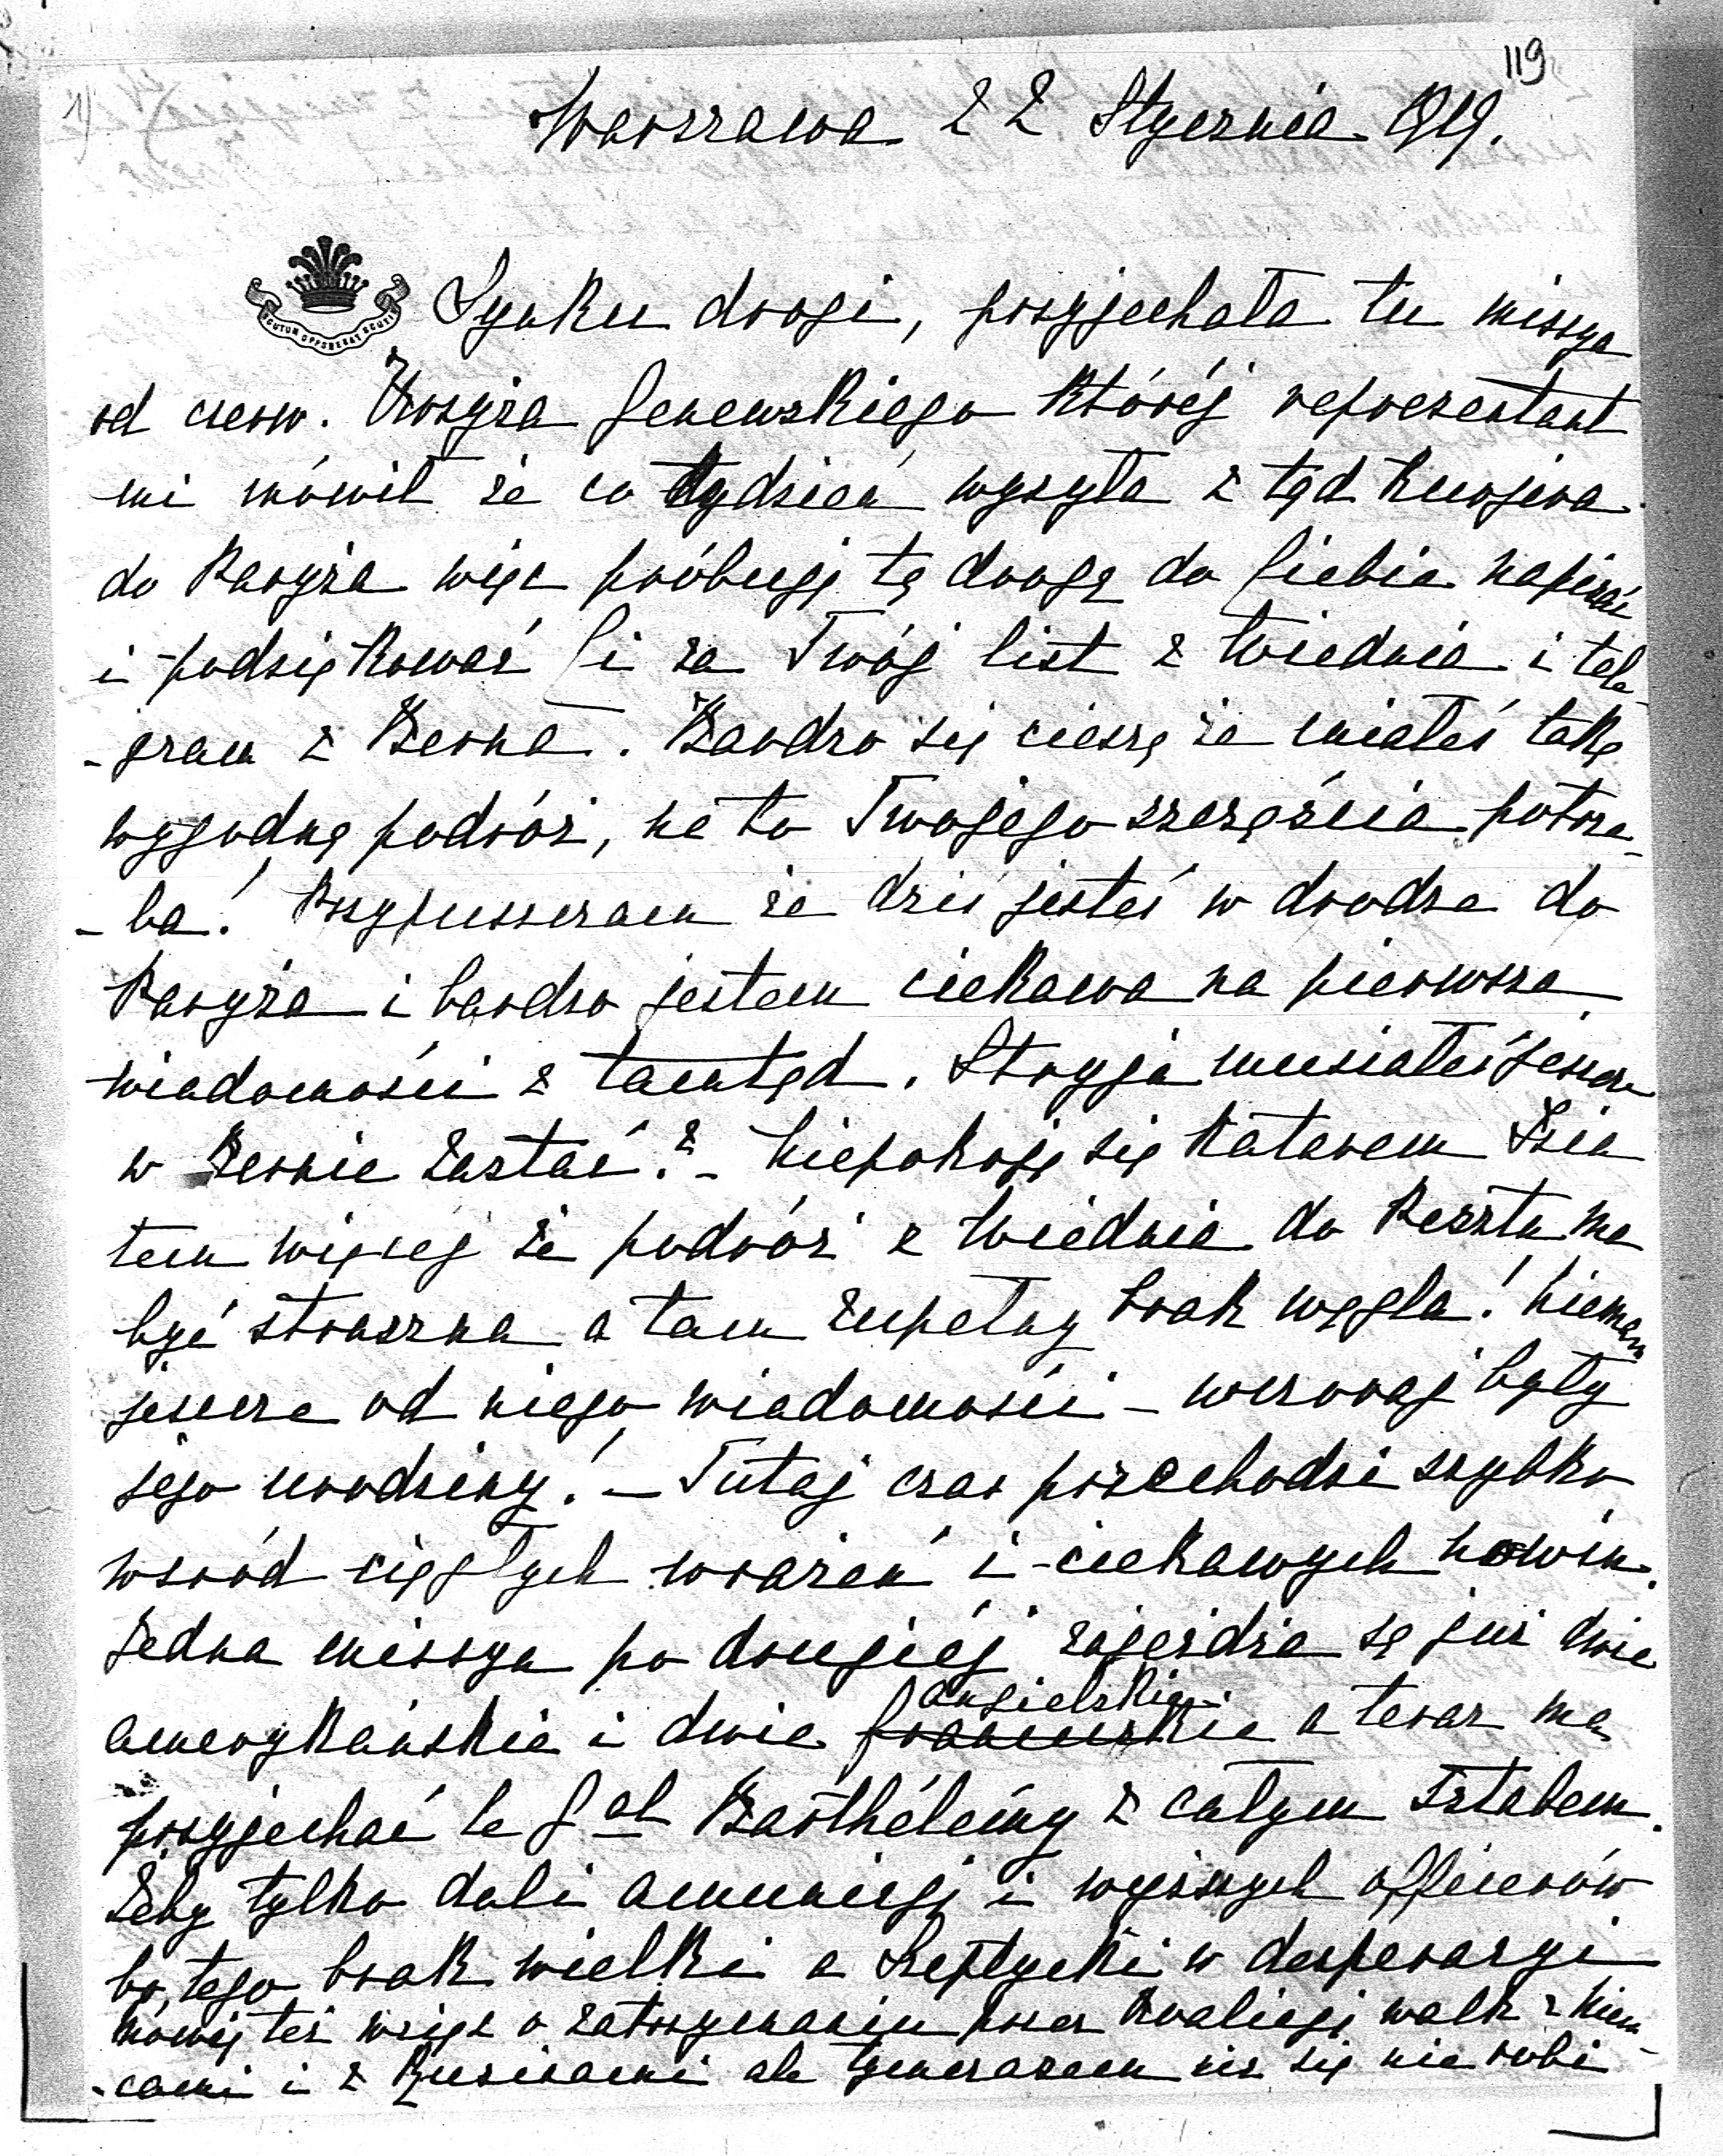 119
1)
Warszawa 22 Stycznia 1919.
SCUTUM OPPONEBAT SCUTIS
Synku drogi, przyjechała tu missya
od czerw. Krzyża Genewskiego któréj reprezentant
mi mówił że co tydzień wysyła z tąd kurjera
do Paryża więc próbuję tą drogą do Ciebie napisać
i podziękować Ci za Twój list z Wiednia i tele
-gram z Berna. Bardzo się cieszę że miałeś taką
wygodną podróż, na to Twojego szczęścia potrze-
-ba! Przypuszczam że dziś jesteś w drodze do
Paryża i bardzo jestem ciekawa na pierwsze
wiadomości z tamtąd. Stryja musiałeś jeszcze
w Bernie zastać? - Niepokoję się katarem
tem więcéj że podróż z Wiednia do Pesztu ma
być straszna a tam zupełny brak węgla! Niemam
jeszcze od niego wiadomości - wczoraj były
jego urodziny! - Tutaj czas przechodzi szybko
wsród ciągłych wrażeń i ciekawych nowin.
Jedna missya po drugiéj zajeżdża są już dwie
amerykańskie i dwie francuzkie angielskie a teraz ma
przyjechać le Gal Barthélémy z całym Sztabem.
Żeby tylko dali amunicję i wyższych officerów
bo tego brak wielki a Szeptycki w desperacyi
mówią też wciąż o zatrzymaniu przez Koalicję walk z Niem-
-cami i z Rusinami ale tymczasem nic się nie robi